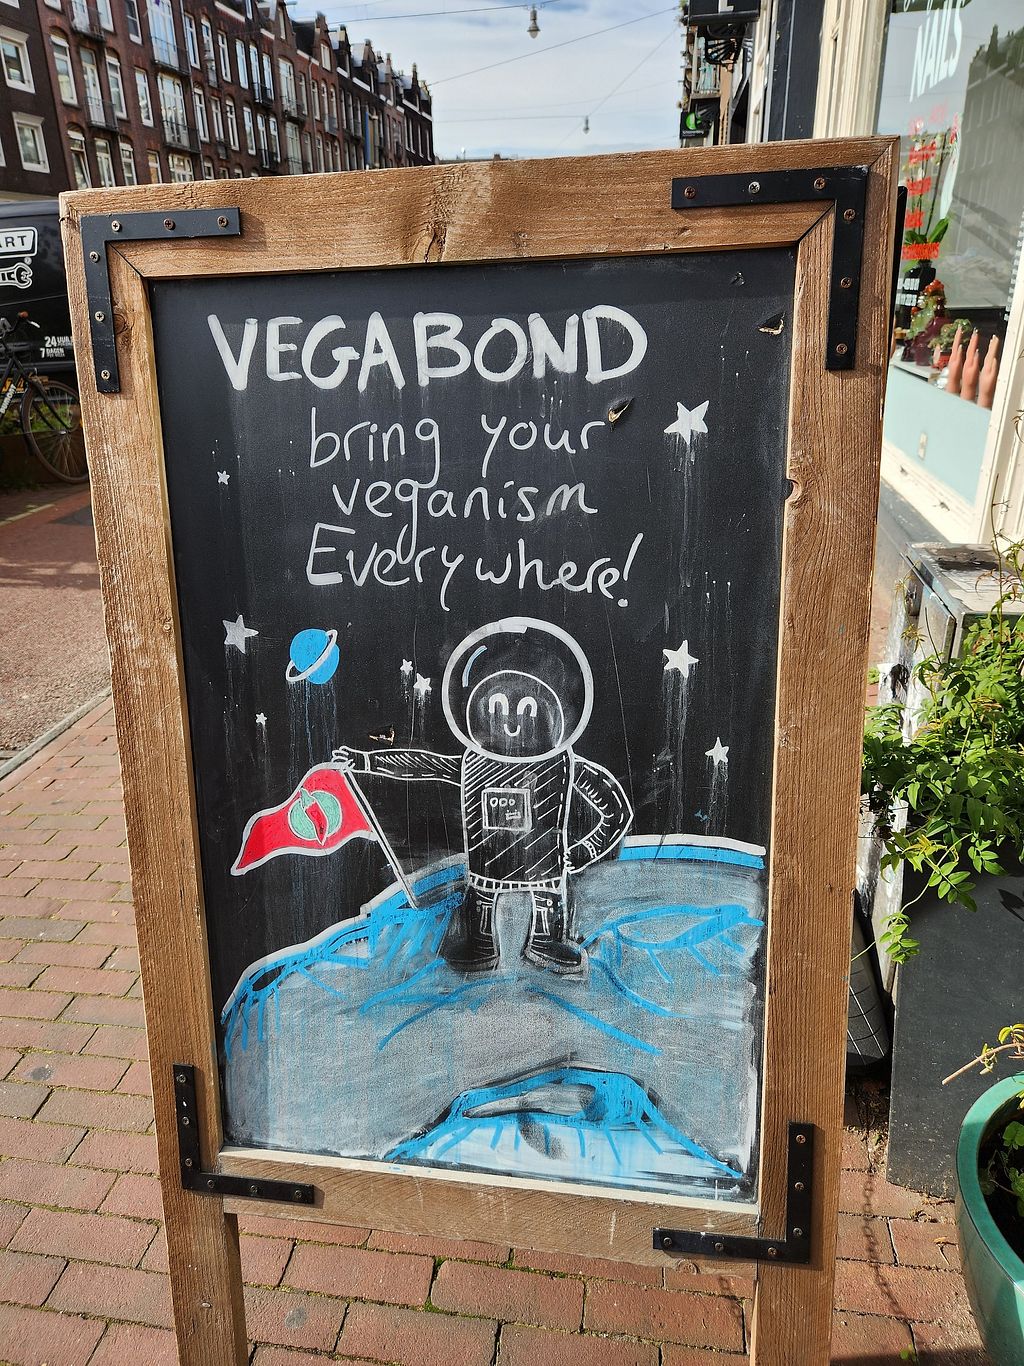 VEGABOND
bring your
veganism
Everywhere!
NAILS
ART
24 UUR
7 DAGEN